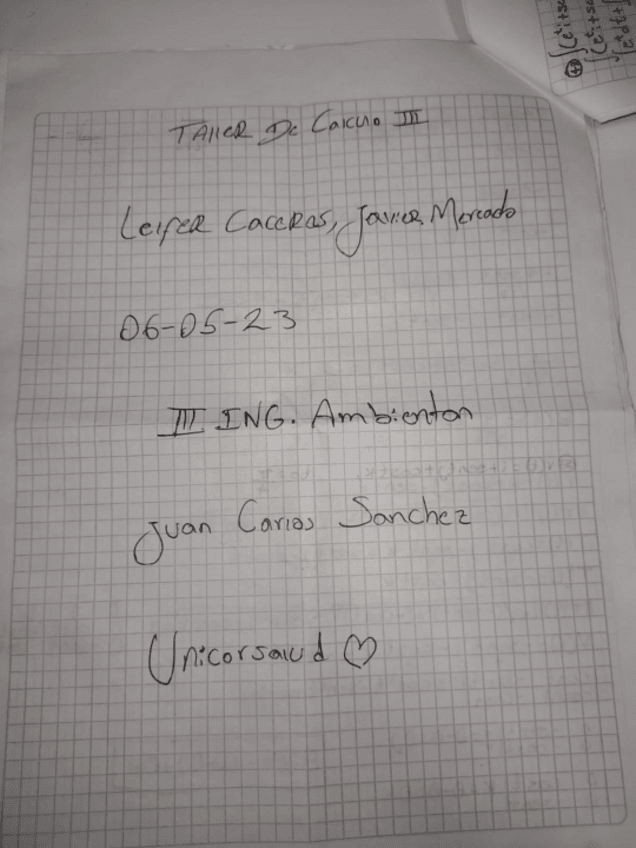 TAller De Calculo III
Leifer Caceras, Javier Mercado
06-05-23
III ING. Ambienton
Juan Carlos Sanchez
Unicorsalud ♡